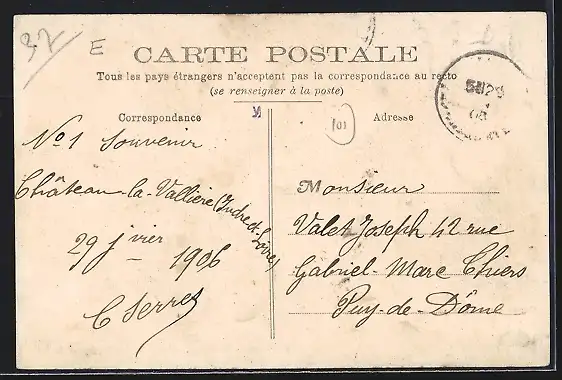 37 E
CARTE POSTALE
Tous les pays étrangers n'acceptent pas la correspondance au recto
(se renseigner à la poste)
Correspondance
No 1 Souvenir
Château-la-Vallière (Indre-et-Loire)
29 jvier 1906
C Serres
101
Adresse
Monsieur
Valet Joseph 42 rue
Gabriel-Marc Thiers
Puy-de-Dôme